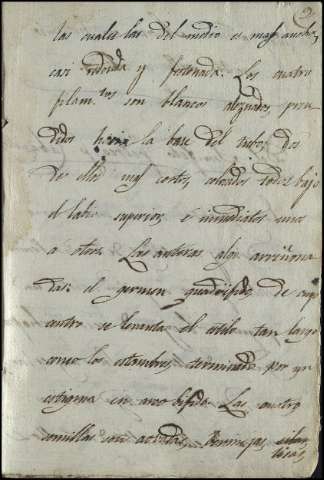 2
las cuales las del medio es mas ancha,
casi redonda y festonada. Los cuatro
filam.tos son blancos alesnados, pren
didos hacia la base del tubo, dos
de ellos muy cortos, colocados todos bajo
el labio superior, é inmediatos unos
a otros. Las anteras algo arriñona
das: el germen quadrifido, de cuyo
centro se levanta el estilo tan largo
como los estambres, terminado por un
estigma en arco bifido. Las quatro
semillas son aovadas, bermejas,